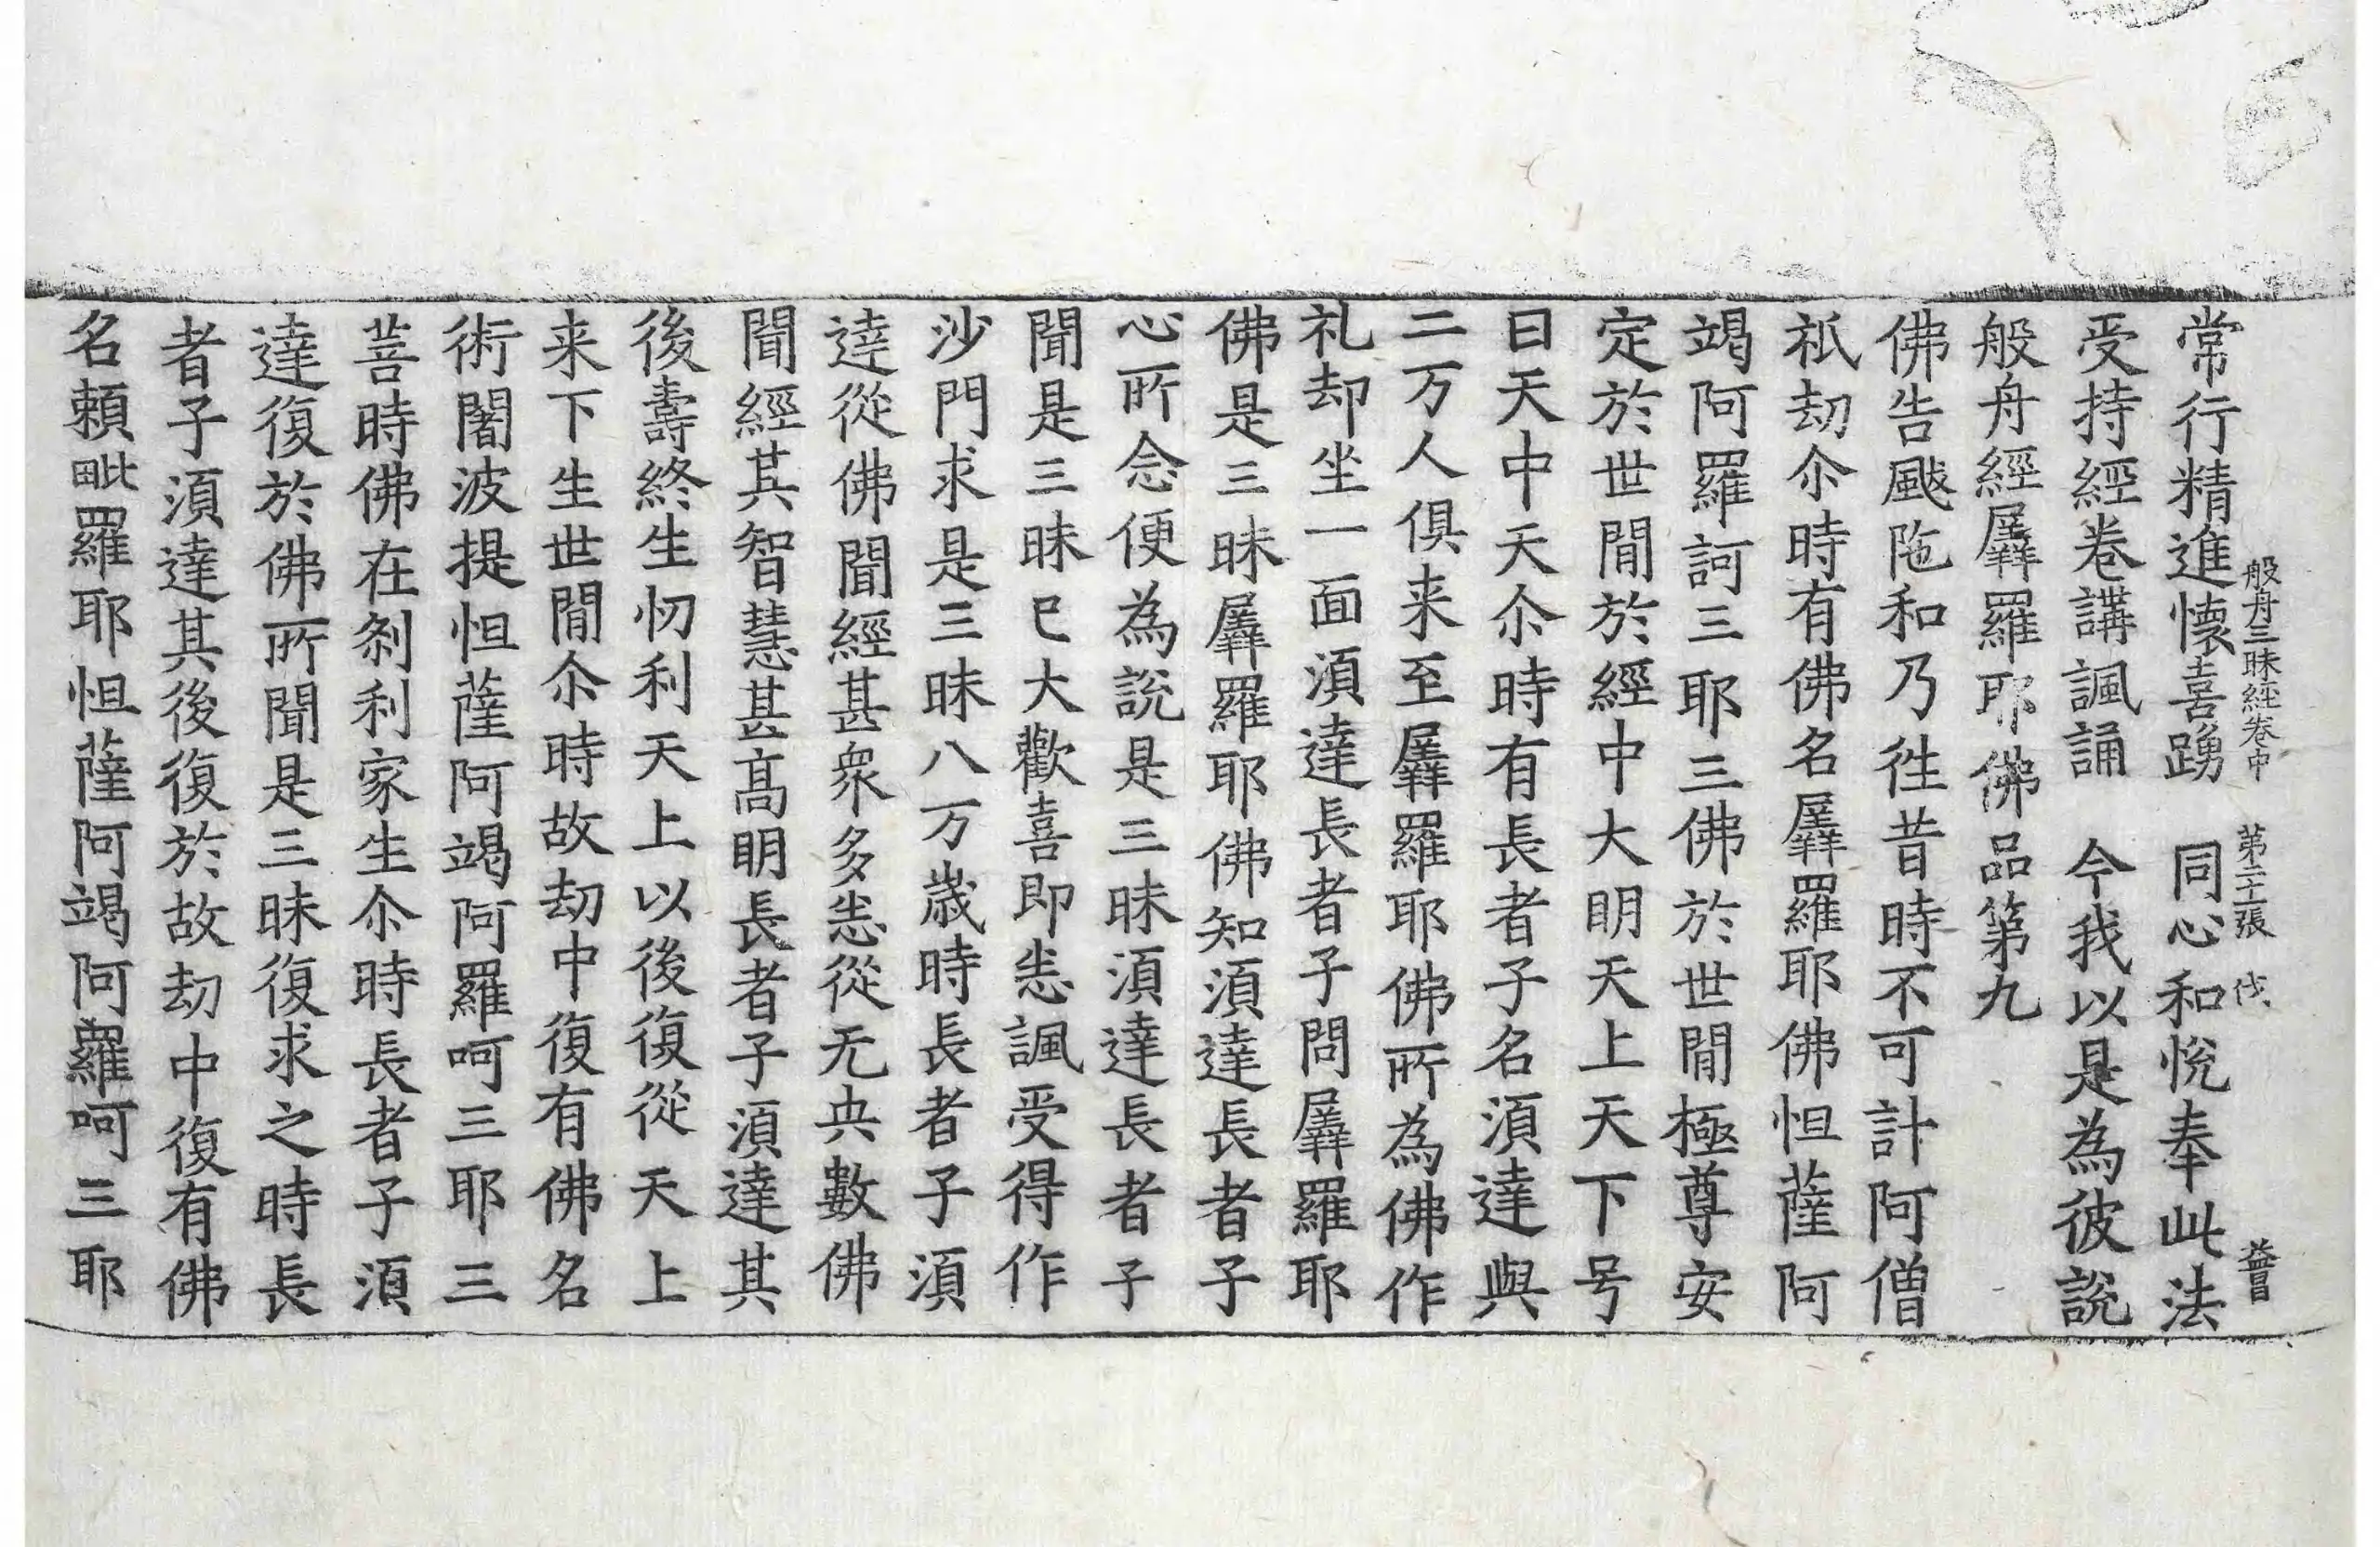 般舟三昧經卷中 第二十張 伐 益昌
常行精進懷喜踴 同心和悅奉此法
受持經卷講諷誦 今我以是為彼說
般舟經羼羅耶佛品第九
佛告颰陁和乃徃昔時不可計阿僧
祇劫尒時有佛名羼羅耶佛怛薩阿
竭阿羅訶三耶三佛於世閒極尊安
定於世閒於經中大明天上天下号
曰天中天尒時有長者子名湏達與
二万人俱来至羼羅耶佛所為佛作
礼却坐一面湏達長者子問羼羅耶
佛是三昧羼羅耶佛知湏達長者子
心所念便為說是三昧湏達長者子
聞是三昧已大歡喜即悉諷受得作
沙門求是三昧八万歲時長者子湏
達從佛聞經甚衆多悉從无央數佛
聞經其智慧甚高明長者子湏達其
後壽終生忉利天上以後復從天上
来下生世閒尒時故劫中復有佛名
術闍波提怛薩阿竭阿羅呵三耶三
菩時佛在剎利家生尒時長者子湏
達復於佛所聞是三昧復求之時長
者子湏達其後復於故劫中復有佛
名賴毗羅耶怛薩阿竭阿羅呵三耶